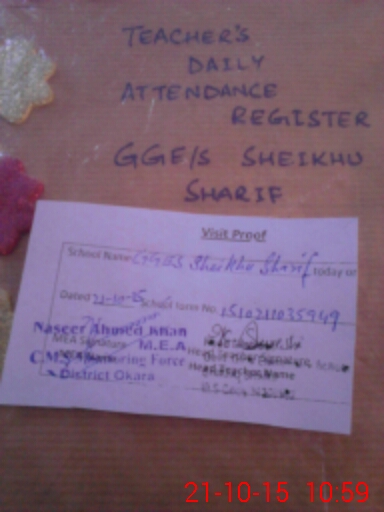 TEACHER'S
DAILY
ATTENDANCE
REGISTER
GGE/S SHEIKHU
SHARIF
Visit Proof
School Name GGES Sheikhu Sharif today on
Dated 21-10-15 School form No. 1510211035949
Naseer Ahmed Khan
MEA Signature M.E.A
C.M. Monitoring Force
District Okara
Head Teacher Signature
Head Teacher Name
21-10-15 10:59